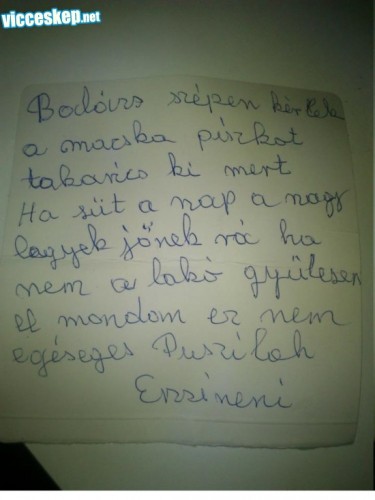 vicceskep.net
Bodóirs szépen kérlek
a macska piszkot
takarics ki mert
Ha süt a nap a nagy
legyek jönek rá ha
nem a lakó gyülesen
el mondom ez nem
egéseges Puszilah
Erzsineni